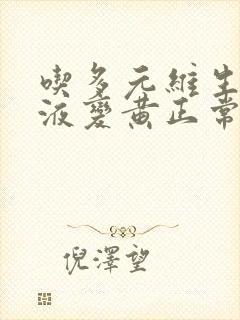 喫多元維生
液變黃正常
倪澤望